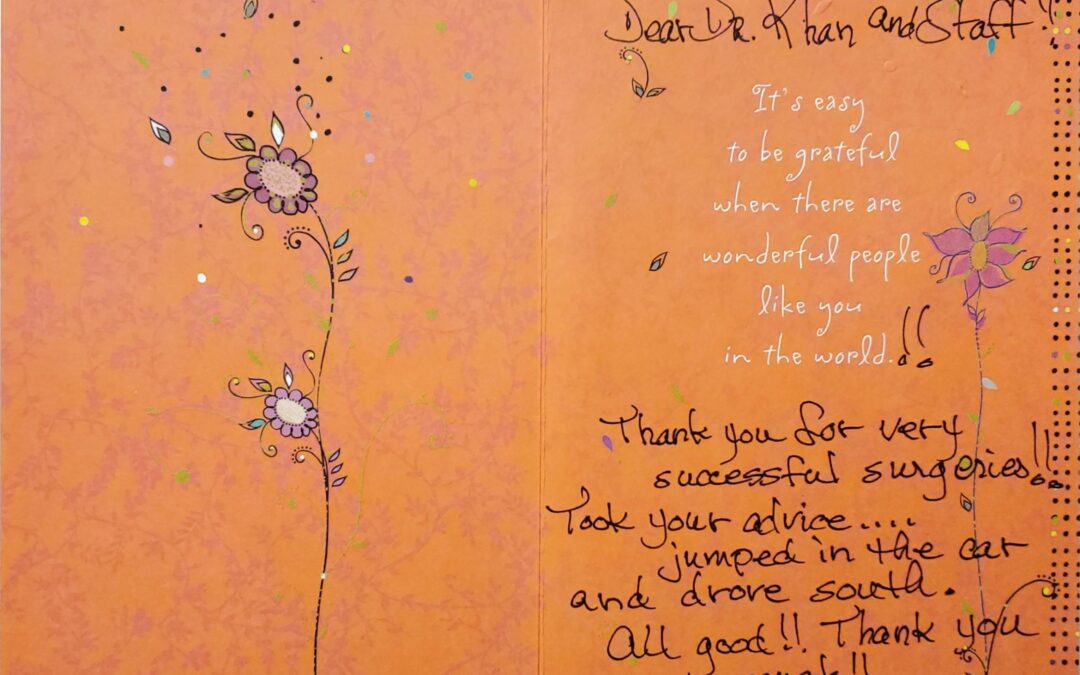 Dear Dr. Khan and Staff!
It's easy
to be grateful
when there are
wonderful people
like you
in the world.!!
Thank you for very
successful surgeries!!
Took your advice....
jumped in the car
and drove south.
All good!! Thank you